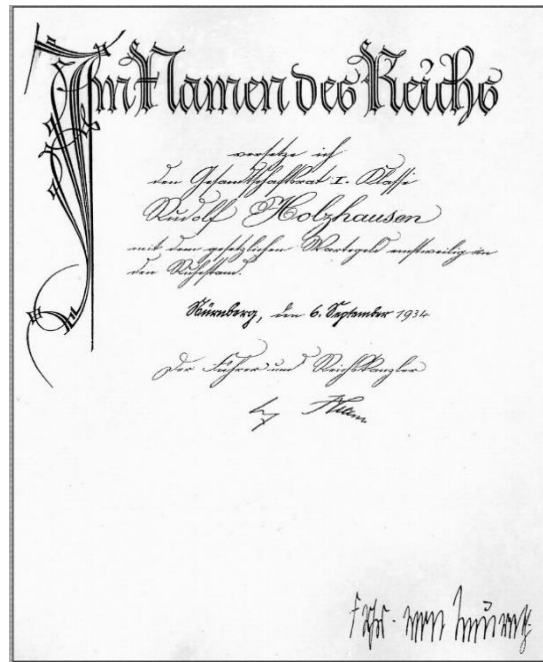 Im Namen des Reichs
versetze ich
den Gesandtschaftsrat I. Klasse
Rudolf Holzhausen
mit dem gesetzlichen Wartegeld einstweilig in
den Ruhestand.
Nürnberg, den 6. September 1934
Der Führer und Reichskanzler
Frhr. von Neurath